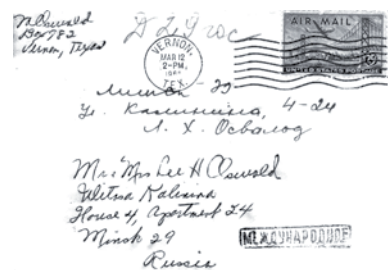 M Oswald
Box 782
Vernon, Texas
VERNON,
MAR 12
2-PM
TEX.
AIR MAIL
UNITED STATES POSTAGE
Минск - 29
Ул. Калинина, 4-24
Л. Х. Освалод
Mr & Mrs Lee H Oswald
Ulitsa Kalinina
House 4, Apartment 24
Minsk 29
Russia
МЕЖДУНАРОДНОЕ